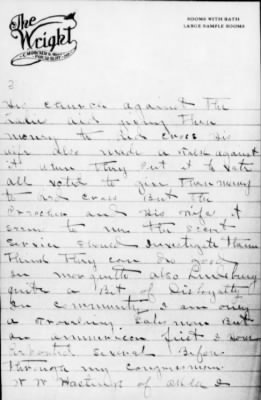 The
Wright
ROOMS WITH BATH
LARGE SAMPLE ROOMS
2
His church against the
giving their
money to red cross His
wife also made a talk against
it when they put it to vote
all voted to give their money
to red cross But the
and His wife it
seems to me the secret
service should investigate them
think they can do good
in also
quite a Bit of Disloyalty
in community I am only
a traveling sales man But
an american first I Have
reported several Before
through my congressman
W W Hastings of Okla I